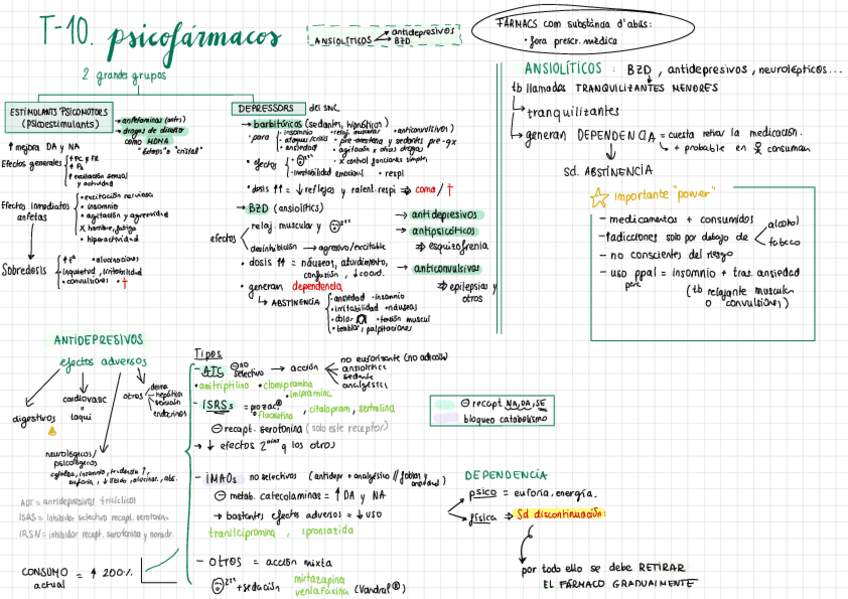 T-10. psicofármacos
ANSIOLÍTICOS → antidepresivos
BZD
FÁRMACS com substància d'abús:
• fora prescr. médica
2 grandes grupos
ESTIMULANTS PSICOMOTORS
(PSicoestimulants)
→ anfetaminas
→ drogas de diseño
como MDMA
"éxtasis" o "cristal"
↑ mejora DA y NA
Efectos generales
↑ FC y FR
↑ excitación sexual
y actividad
Efectos inmediatos
anfetas
• excitación nerviosa
• insomnio
• agitación y agresividad
X hambre, fatiga
• hiperactividad
Sobredosis
• alucinaciones
• inquietud, irritabilidad
• convulsiones • †
DEPRESSORS del SNC
→ barbitúricos (sedantes, hipnóticos)
• para
• insomnio
• ansiedad
• relaj. muscular
• anticonvulsivos
• pre-anestesia y sedantes pre-qx
• agitación x otras drogas
• efectos
• zzz
• inestabilidad emocional
• X control funciones simples
• respi
• dosis ↑↑ = ↓ reflejos y ralent. respi ⇒ coma / †
→ BZD (ansiolítics)
efectos
relaj. muscular y zzz
desinhibición → agresivo/excitable
• dosis ↑↑ = náuseas, aturdimiento,
confusión, ↓ coord.
• generan dependencia
↳ ABSTINENCIA
• ansiedad • insomnio
• irritabilidad • náuseas
• dolor • tensión muscul
• temblor, palpitaciones
→ antidepresivos
→ antipsicóticos
⇒ esquizofrenia
→ anticonvulsivos
⇒ epilepsias y
otros
ANSIOLÍTICOS : BZD, antidepresivos, neurolépticos...
tb llamados TRANQUILIZANTES MENORES
→ tranquilizantes
→ generan DEPENDENCIA = cuesta retirar la medicación.
↳ + probable en ♀ consuman
Sd. ABSTINENCIA
importante "power"
– medicamentos + consumidos
– adicciones solo por debajo de
alcohol
tabaco
– no conscientes del riesgo
– uso ppal = insomnio + tras. ansiedad
(tb relajante muscular
o convulsiones)
ANTIDEPRESIVOS
efectos adversos
digestivos
cardiovasc
=
taqui
neurológicos/
psicológicos
otros
derma
hepática
sexuain
endocrinos
ADT = antidepresivos tricíclicos
ISRS = inhibidor selectivo recapt. serotonina
IRSN = inhibidor recapt. serotonina y noradr.
CONSUMO = ↑ 200%
actual
Tipos
– ATC ⊖ no selectivo → acción
no euforizante (no adicción)
ansiolítica
sedante
analgésica
• amitriptilina • clomipramina
• imipramina
– ISRSs = prozac®
fluoxetina, citalopram, sertralina
⊖ recapt. serotonina (solo este receptor)
→ ↓ efectos 2arios q los otros
– iMAOs no selectivos (antidepr + analgésico // fobias y ansiedad)
⊖ metab. catecolaminas = ↑ DA y NA
→ bastantes efectos adversos = ↓ uso
tranilcipromina, iproniazida
– OTROS = acción mixta
zzz + sedación
mirtazapina
venlafaxina (Vandral®)
⊖ recapt NA, DA, SE
bloqueo catabolismo
DEPENDENCIA
psico = euforia, energía.
física ⇒ Sd discontinuación:
por todo ello se debe RETIRAR
EL FÁRMACO GRADUALMENTE